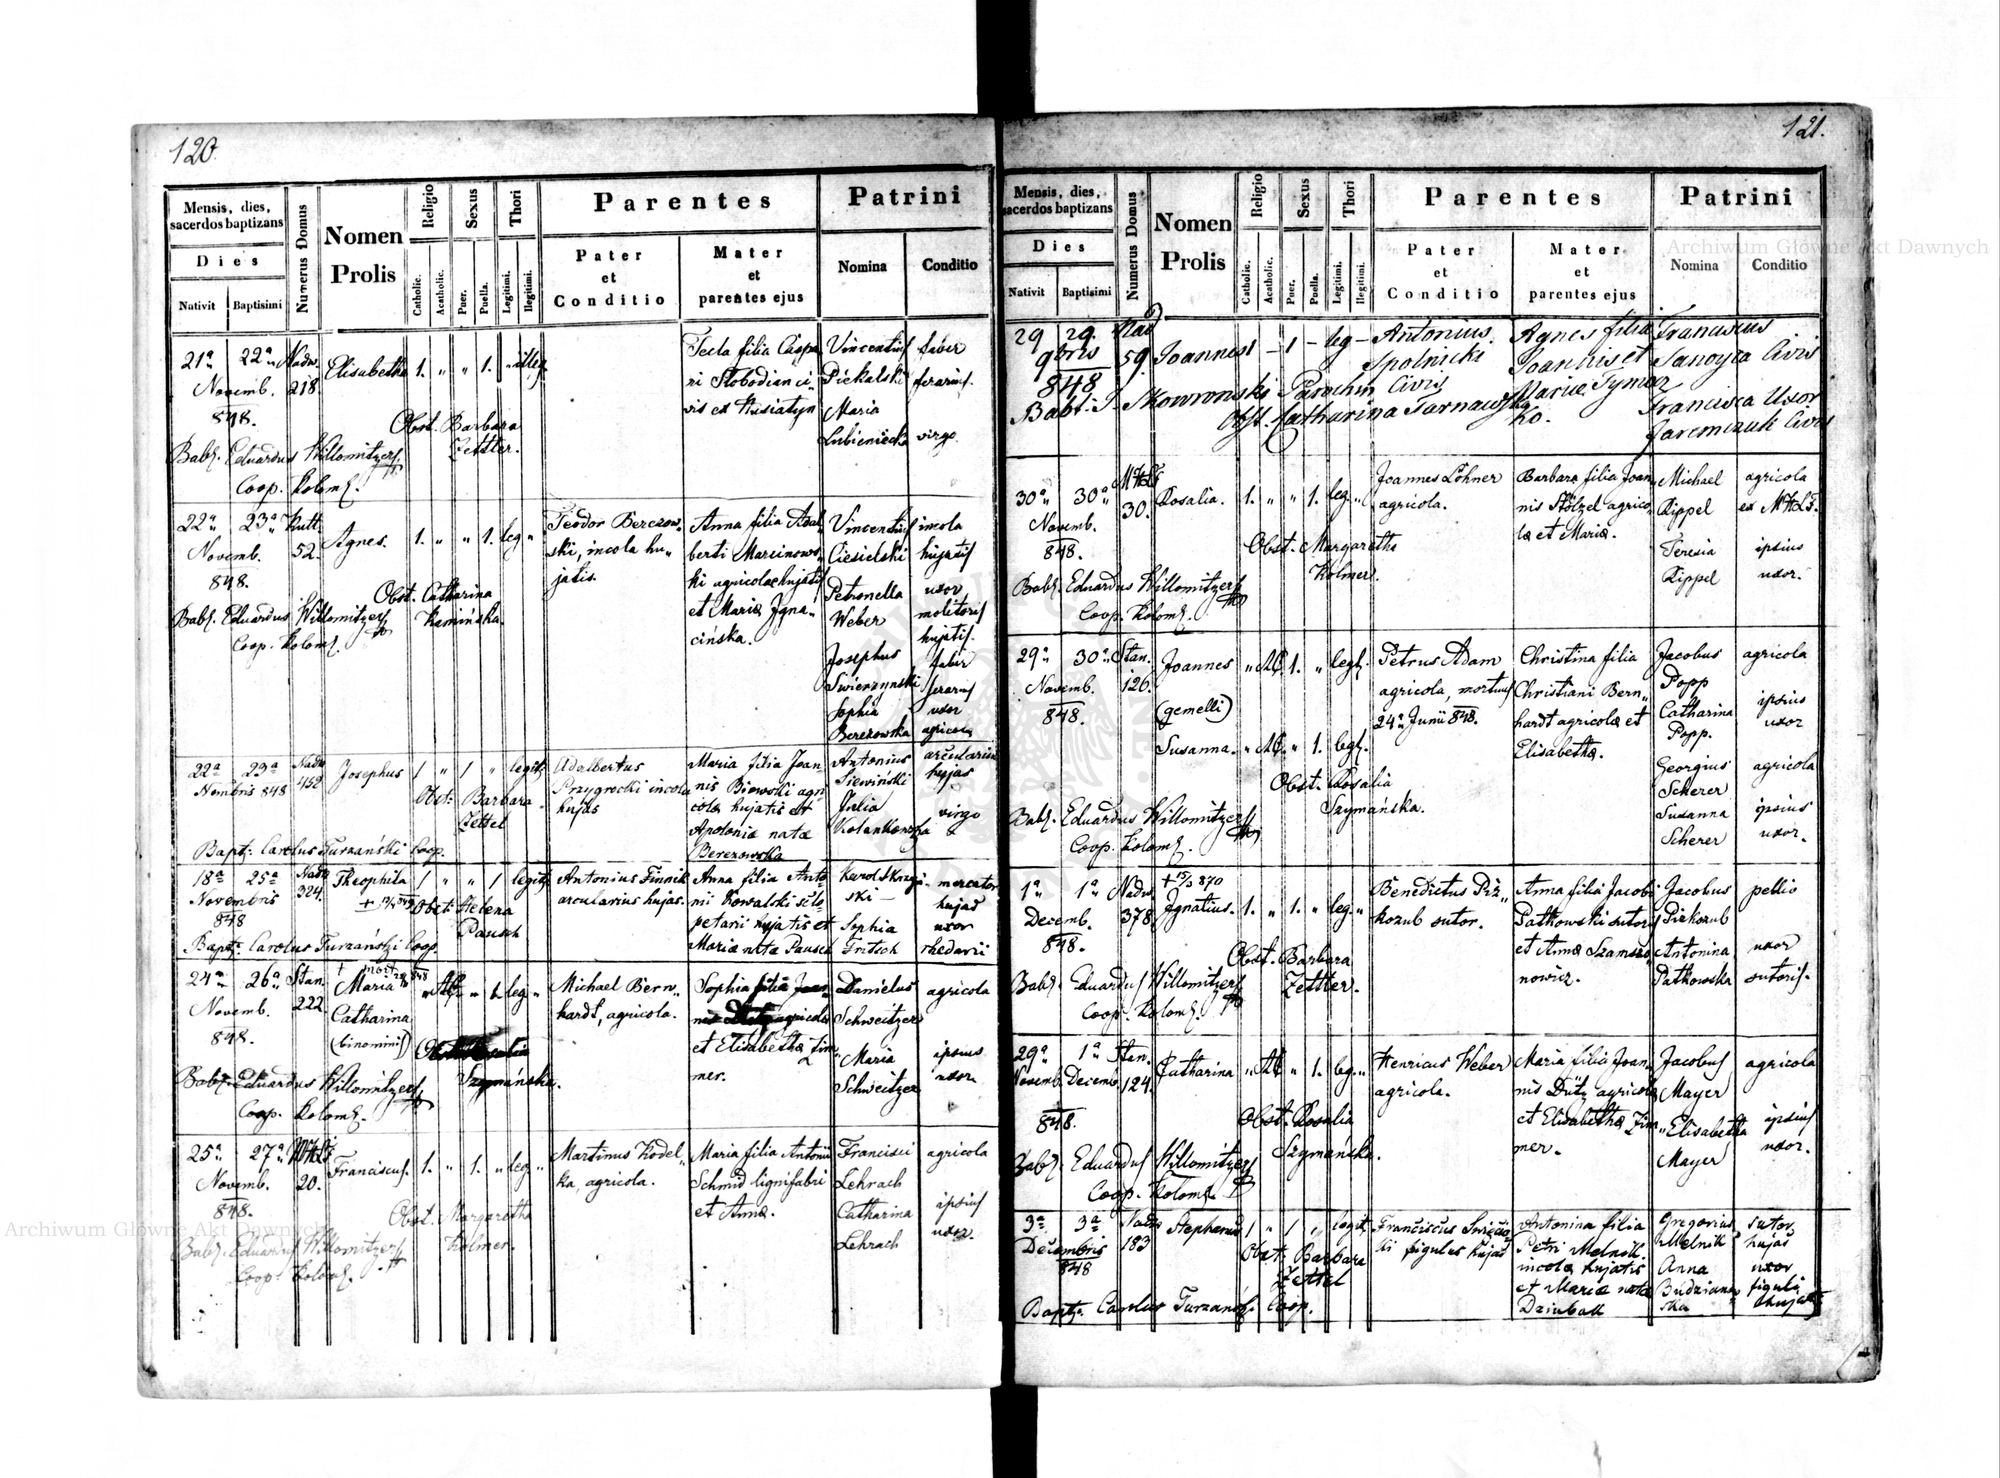 120.
Mensis, dies, sacerdos baptizans
Dies
Nativit
Baptisimi
Numerus Domus
Nomen Prolis
Religio
Catholic.
Acatholic.
Sexus
Puer.
Puella.
Thori
Legitimi.
Ilegitimi.
Parentes
Pater et Conditio
Mater et parentes ejus
Patrini
Nomina
Conditio
21a 22a Nadw. Elisabetha 1. " " 1. " illeg.
Novemb. 218.
848.
Tecla filia Caspa
ri Slobodian ci
vis ex Husiatyn
Vincentius faber
Piekalski ferarius.
Maria
Lubieniecka virgo.
Obst. Barbara
Zettler.
Bab. Eduardus Willomitzer
Coop. Kolom.
22a 23a Kutt. Agnes. 1. " " 1. leg "
Novemb. 52.
848.
Teodor Berezow
ski, incola hu
jatis.
Anna filia Adal
berti Marcinows
ki agricolae hujatis
et Mariae Igna
cińska.
Vincentius incola
Ciesielski hujatis
Petronella uxor
Weber molitoris
hujatis.
Josephus faber
Swierzynski ferarius
Sophia uxor
Berezowska agricolae
Obst. Catharina
Kamińska.
Bab. Eduardus Willomitzer
Coop. Kolom.
22a 23a Nadw Josephus 1 " 1 " legit
Novembris 848 452
Adalbertus
Przygrocki incola
hujas
Maria filia Joan
nis Biewski agri
colae hujatis et
Apoloniae natae
Berezowska
Antonius arcularius
Siewiński hujas
Julia virgo
Obst: Barbara
Zettel
Bapt: Carolus Turzański Coop.
18a 25a Nadw Theophila 1 " " 1 legit
Novembris 324.
848
Antonius Finnik
arcularius hujas.
Anna filia Anto
nii Kowalski
hujatis et
Mariae nata Pausch
Karol mercator
ski hujas
Sophia uxor
Fritsch rhedarii
Obst: Helena
Pausch
Bapt: Carolus Turzański Coop.
24a 26a Stan. Maria " " leg "
Novemb. 222. Catharina
848. (binominis)
Michael Bern
hardt, agricola.
Sophia filia Joan
nis agricolae
et Elisabethae Zim
mer.
Danielus agricola
Schweitzer
Maria ipsius
Schweitzer uxor
Szymańska.
Bab. Eduardus Willomitzer
Coop. Kolom.
25a 27a Franciscus. 1. " 1. " leg "
Novemb. 20.
848.
Martinus Kodel
ka, agricola.
Maria filia Antonii
Schmid lignifabri
et Annae.
Francisci agricola
Lehrach
Catharina ipsius
Lehrach uxor.
Obst. Margaretha
Kolmer.
Bab. Eduardus Willomitzer
Coop. Kolom.
121.
Mensis, dies, sacerdos baptizans
Dies
Nativit
Baptisimi
Numerus Domus
Nomen Prolis
Religio
Catholic.
Acatholic.
Sexus
Puer.
Puella.
Thori
Legitimi.
Ilegitimi.
Parentes
Pater et Conditio
Mater et parentes ejus
Patrini
Nomina
Conditio
29 29. Nad Joannes 1 - 1 - leg -
9bris 59.
848
Antonius
Spolnicki
Civis
Agnes filia
Joannis et
Mariae Tymcz
ko.
Franciscus
Sanoyca Civis
Francisca Uxor
Jaremczuk Civis
Babt: J. Skowronski Parochus
Obst. Catharina Tarnawska
30a 30a Rosalia. 1. " " 1. leg. "
Novemb. 30.
848.
Joannes Löhner
agricola.
Barbara filia Joan
nis Stölzel agrico
lae et Mariae.
Michael agricola
Rippel
Teresia ipsius
Rippel uxor.
Obst. Margaretha
Kolmer.
Bab. Eduardus Willomitzer
Coop. Kolom.
29a 30a Stan. Joannes 1. " leg.
Novemb. 126.
848. (gemelli)
Susanna. " 1. leg.
Petrus Adam
agricola, mortuus
24a Junii 848.
Christina filia
Christiani Bern
hardt agricolae et
Elisabethae.
Jacobus agricola
Popp
Catharina ipsius
Popp. uxor
Georgius agricola
Scherer
Susanna ipsius
Scherer uxor.
Obst. Rosalia
Szymańska.
Bab. Eduardus Willomitzer
Coop. Kolom.
+ 15/3 870
1a 1a Nadw. Ignatius. 1. " 1. " leg. "
Decemb. 378.
848.
Benedictus Piz
kozub sutor.
Anna filia Jacobi
Patkowski sutoris
et Annae Szamszo
nowicz.
Jacobus pellio
Pizkozub
Antonina uxor
Patkowska sutoris.
Obst. Barbara
Zettler.
Bab. Eduardus Willomitzer
Coop. Kolom.
29a 1a Stan. Catharina " " 1. leg. "
Novemb. Decemb. 124.
848.
Henricus Weber
agricola.
Maria filia Joan
nis Dütz agricolae
et Elisabethae Zim
mer.
Jacobus agricola
Mayer
Elisabetha ipsius
Mayer uxor.
Obst. Rosalia
Szymańska.
Bab. Eduardus Willomitzer
Coop. Kolom.
3a 3a Nadw Stephanus 1 " 1 " legit
Decembris 183
848
Franciscus
figulus hujas
Antonina filia
Petri Melnik
incolae hujatis
et Mariae nata
Dziubak
Gregorius sutor
Melnik hujas
Anna uxor
figuli
hujatis
Obst. Barbara
Zettel
Bapt: Carolus Turzański Coop.
Archiwum Główne Akt Dawnych
Archiwum Główne Akt Dawnych